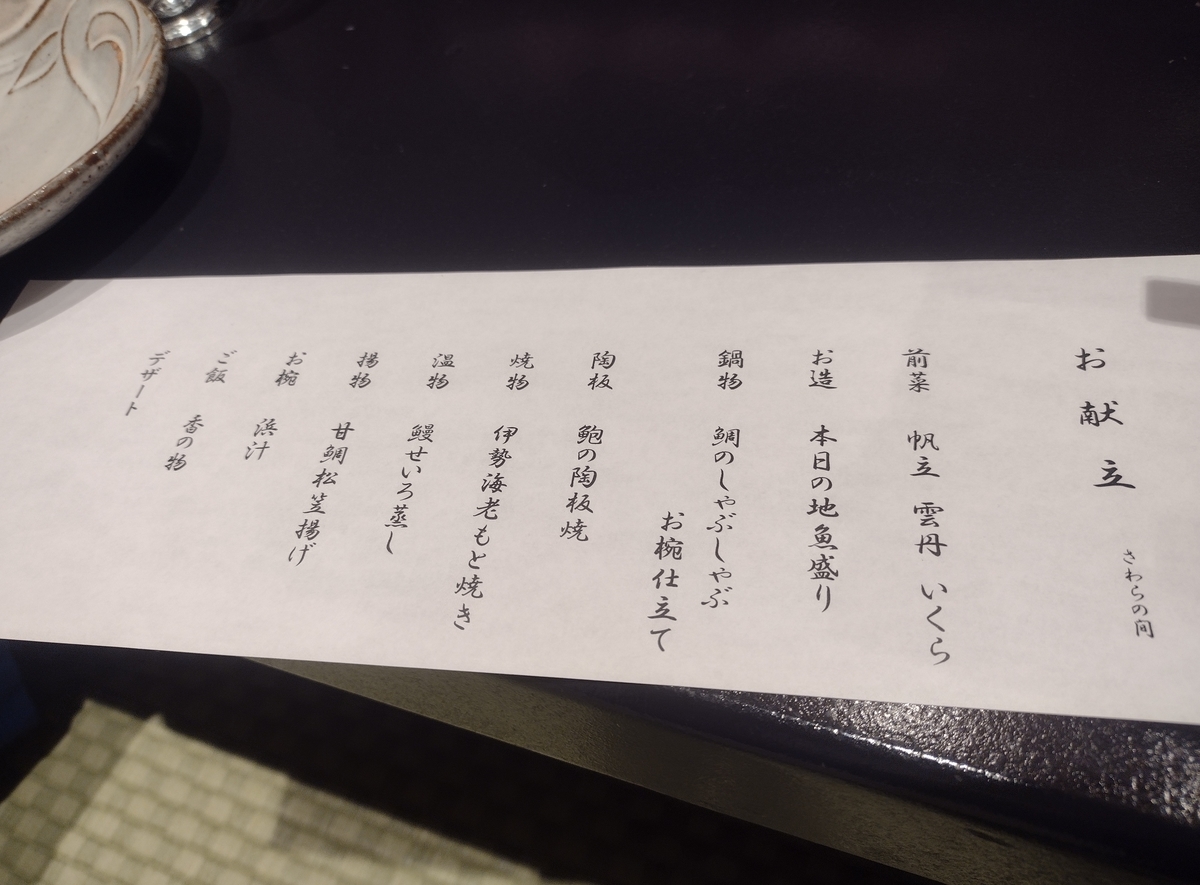 お献立
さわらの間
前菜 帆立 雲丹 いくら
お造 本日の地魚盛り
鍋物 鯛のしゃぶしゃぶ
お椀仕立て
陶板 鮑の陶板焼
焼物 伊勢海老もと焼き
温物 鰻せいろ蒸し
揚物 甘鯛松笠揚げ
お椀 浜汁
ご飯 香の物
デザート